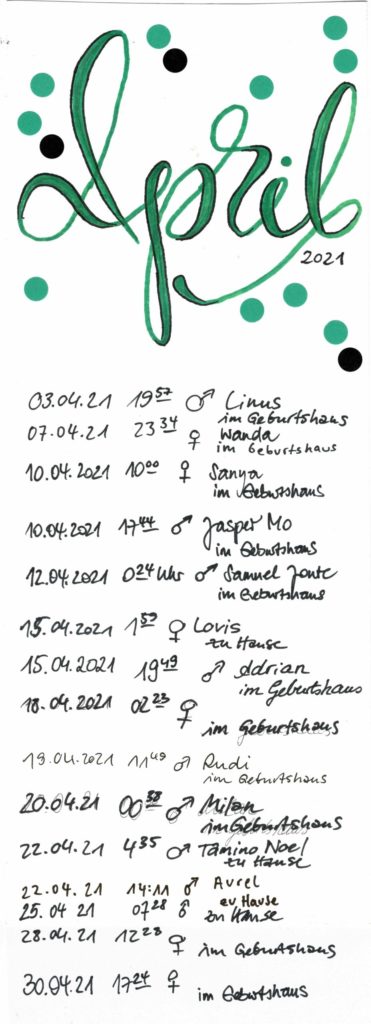 April
2021
03.04.21 19 57 ♂ Linus
im Geburtshaus
07.04.21 23 34 ♀ Wanda
im Geburtshaus
10.04.2021 10 00 ♀ Sanya
im Geburtshaus
10.04.2021 17 44 ♂ Jasper Mo
im Geburtshaus
12.04.2021 0 24 Uhr ♂ Samuel Jonte
im Geburtshaus
15.04.2021 1 59 ♀ Lovis
zu Hause
15.04.2021 19 49 ♂ Adrian
im Geburtshaus
18.04.2021 02 23 ♀
im Geburtshaus
19.04.2021 11 49 ♂ Rudi
im Geburtshaus
20.04.21 00 38 ♂ Milan
im Geburtshaus
22.04.21 4 35 ♂ Tamino Noel
zu Hause
22.04.21 14:11 ♂ Avrel
zu Hause
25.04 21 07 28 ♂ zu Hause
28.04.21 12 28 ♀ im Geburtshaus
30.04.21 17 24 ♀ im Geburtshaus